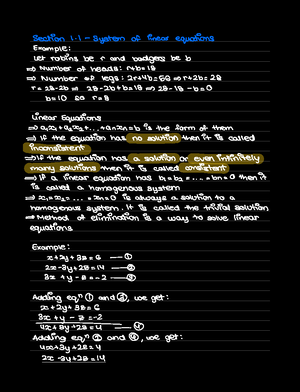 Section 1.1 - System of linear equations
Example:
Let robins be r and badgers be b
⇒ Number of heads: r+b=18
⇒ Number of legs: 2r+4b=56 ⇒ r+2b=28
r=28-2b ⇒ 28-2b+b=18 ⇒ 28-18-b=0
b=10 so r=8
Linear Equations
⇒ a₁x₁+a₂x₂+...+aₙxₙ=b is the form of them
⇒ If the equation has no solution then it is called
inconsistent
⇒ If the equation has a solution or even infinitely
many solutions then it is called consistent
⇒ If a linear equation has b₁=b₂=...=bₙ=0 then it
is called a homogenous system
⇒ x₁=x₂=...=xₙ=0 is always a solution to a
homogenous system. It is called the trivial solution
⇒ Method of elimination is a way to solve linear
equations
Example:
x+2y+3z=6 — ①
2x-3y+2z=14 — ②
3x+y-z=-2 — ③
Adding eqⁿ ① and ③, we get:
x+2y+3z=6
3x+y-z=-2
4x+3y+2z=4 — ④
Adding eqⁿ ② and ④, we get:
4x+3y+2z=4
2x-3y+2z=14